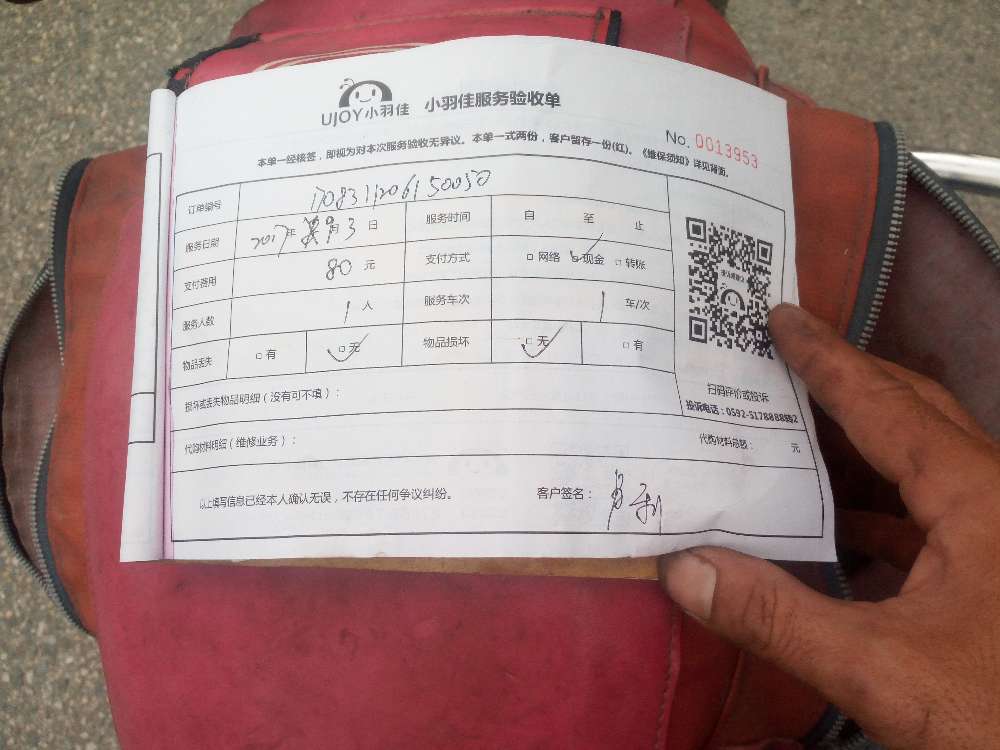 UJOY小羽佳 小羽佳服务验收单
No. 0013953
本单一经核签，即视为对本次服务验收无异议。本单一式两份，客户留存一份(红)。《维保须知》详见背面。
订单编号 1708311206150050
服务日期 2017年 9月3日 服务时间 自 至 止
支付费用 80元 支付方式 □网络 ☑现金 □转账
服务人数 1人 服务车次 1车/次
物品丢失 □有 ☑无 物品损坏 ☑无 □有
扫码评价或投诉
损坏或丢失物品明细（没有可不填）：
投诉电话：0592-5178888转2
代购材料明细（维修业务）： 代购材料总额： 元
以上填写信息已经本人确认无误，不存在任何争议纠纷。 客户签名：